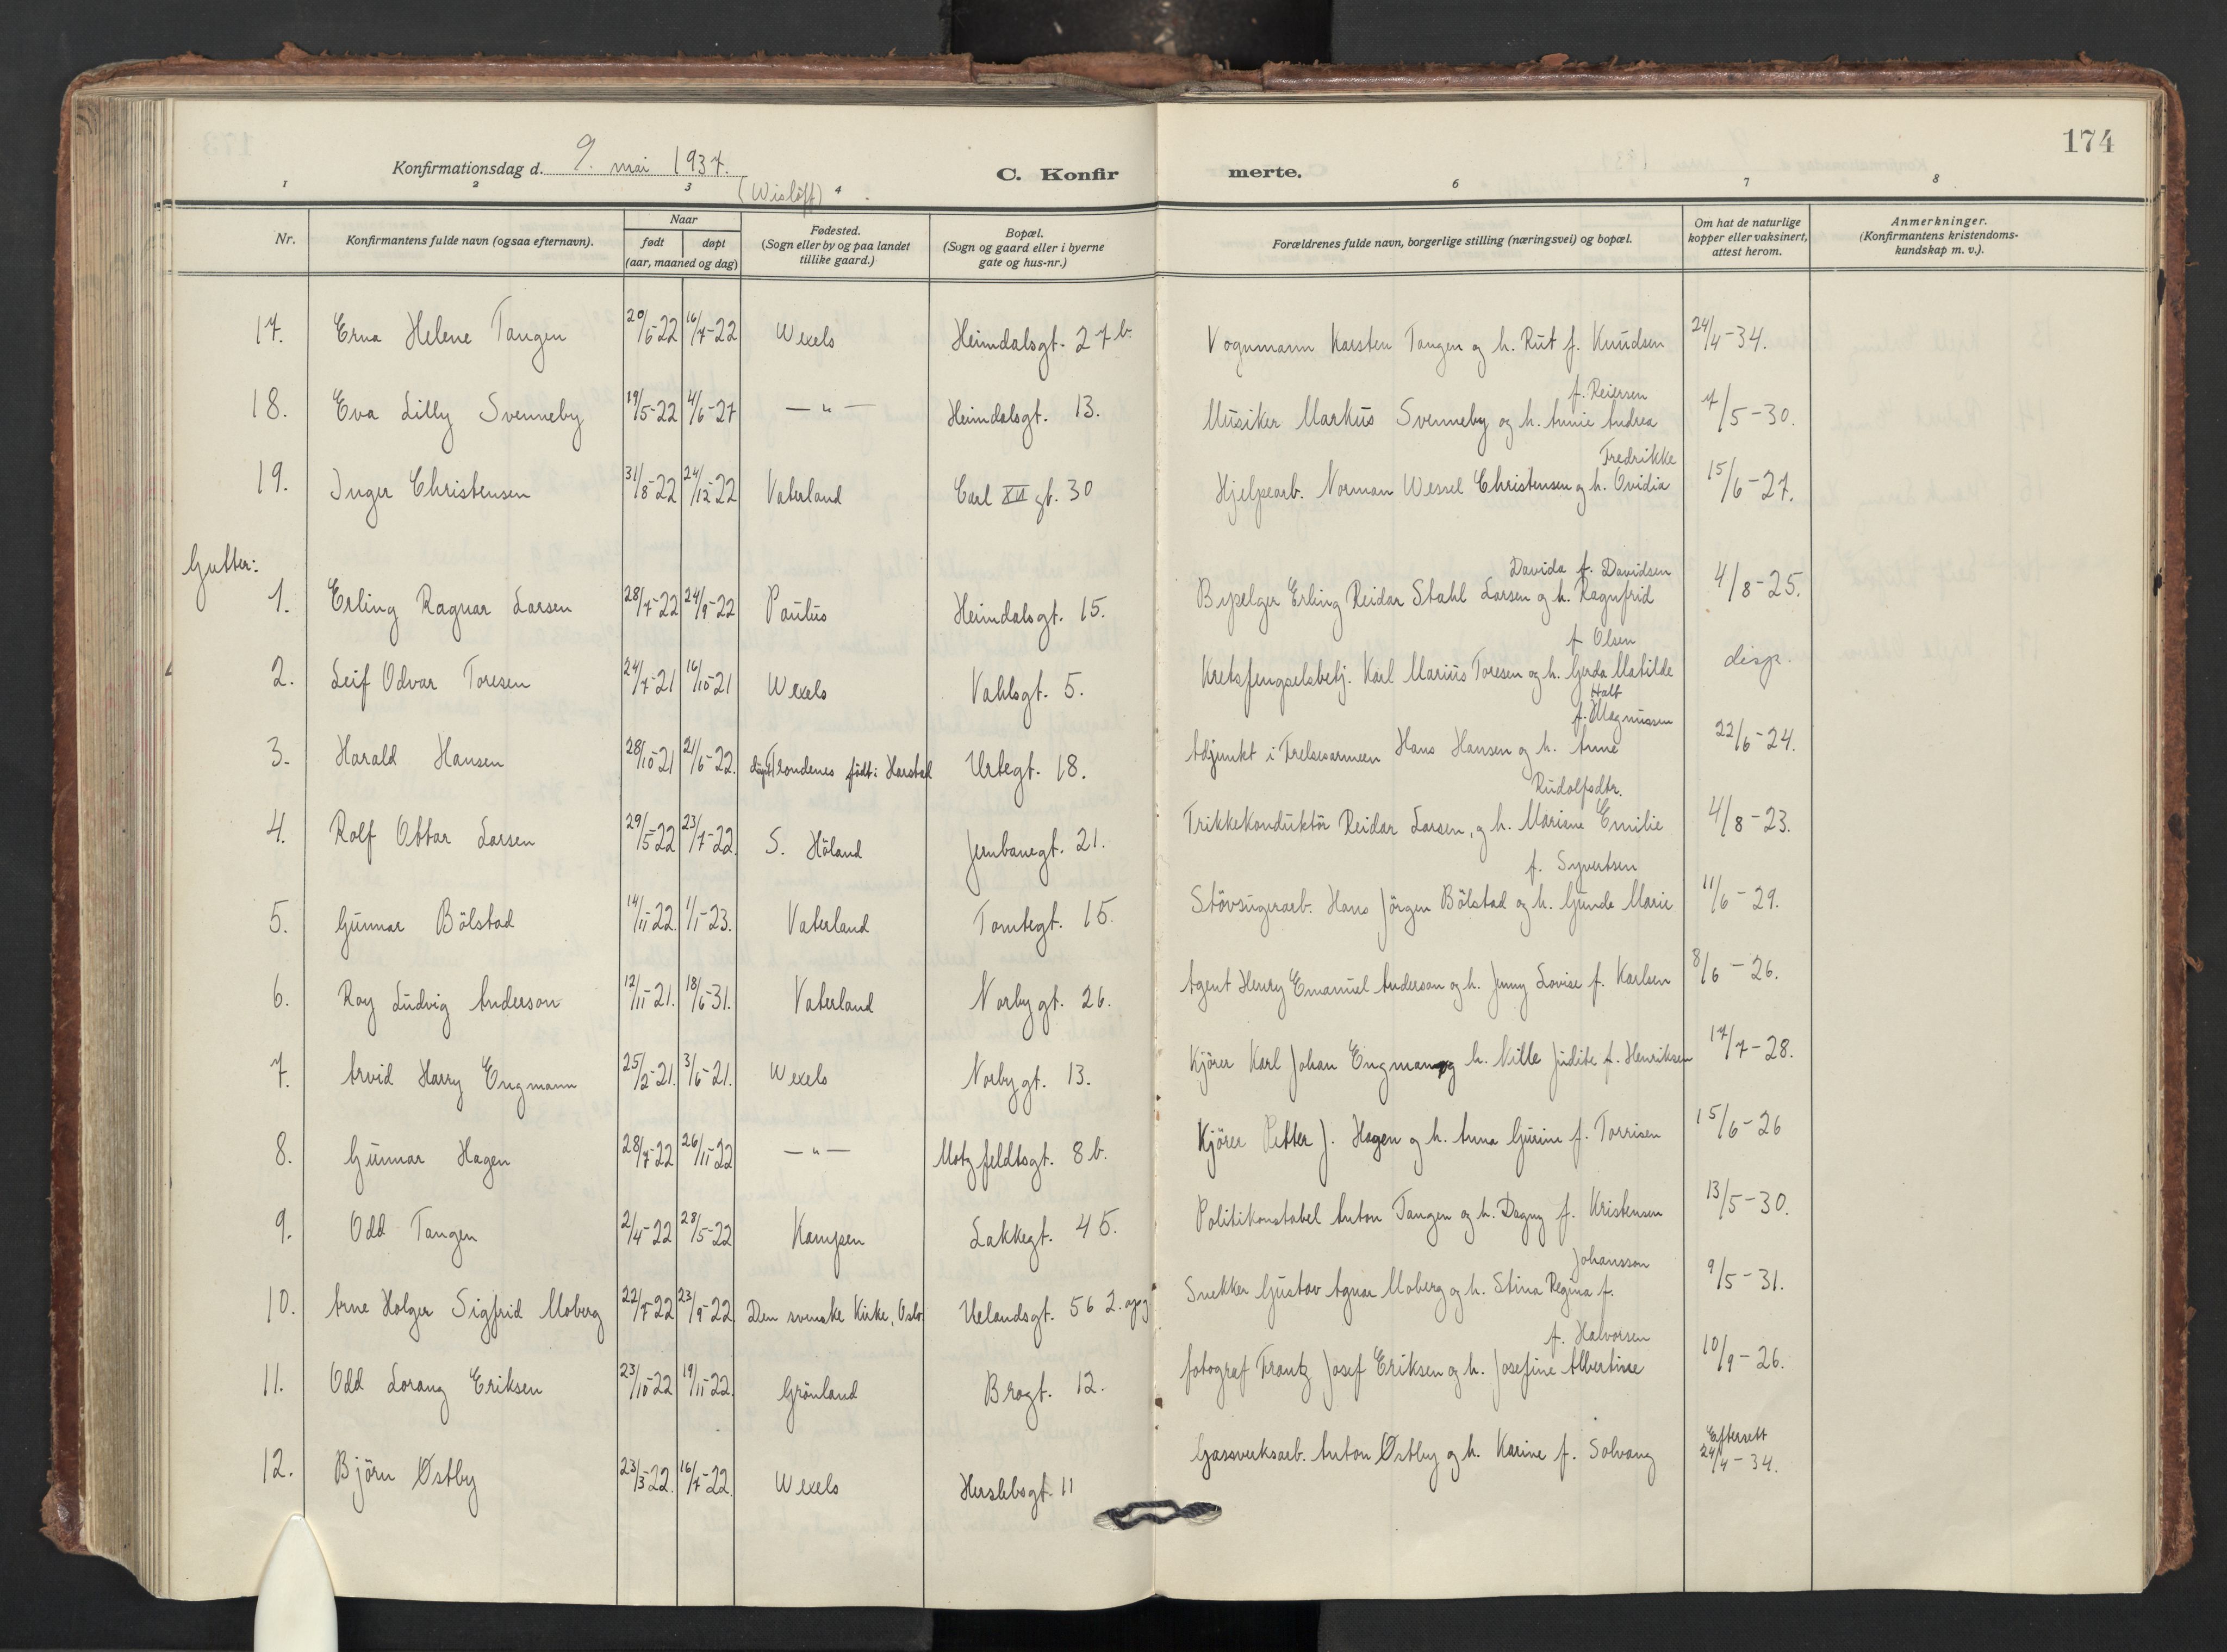 174
Konfirmationsdag d. 9. mai 1937.
(Wislöff)
C. Konfirmerte.
1 2 3 4 6 7 8
Nr.
Konfirmantens fulde navn (ogsaa efternavn).
Naar
født døpt
(aar, maaned og dag)
Fødested.
(Sogn eller by og paa landet
tillike gaard.)
Bopæl.
(Sogn og gaard eller i byerne
gate og hus-nr.)
Forældrenes fulde navn, borgerlige stilling (næringsvei) og bopæl.
Om hat de naturlige
kopper eller vaksinert,
attest herom.
Anmerkninger.
(Konfirmantens kristendoms-
kundskap m. v.).
17. Erna Helene Tangen 20/5-22 16/7-22 Wexels Heimdalsgt. 27 b. Vognmann Karsten Tangen og h. Rut f. Knudsen 24/4-34.
f. Reiersen
18. Eva Lilly Svenneby 19/5-22 4/6-27 — " — Heimdalsgt. 13. Musiker Markus Svenneby og h. Annie Andrea 7/5-30.
Fredrikke
19. Inger Christensen 31/8-22 24/12-22 Vaterland Carl XII gt. 30 Hjelpearb. Norman Wessel Christensen og h. Ovidia 15/6-27.
Gutter:
Davida f. Davidsen
1. Erling Ragnar Larsen 28/7-22 24/9-22 Paulus Heimdalsgt. 15. Bypelger Erling Reidar Stahl Larsen og h. Ragnfrid 4/8-25.
f. Olsen
2. Leif Odvar Toresen 24/7-21 16/10-21 Wexels Vahlsgt. 5. Kretsfengselsbetj. Karl Marius Toresen og h. Gerda Matilde disp.
f. Magnussen
3. Harald Hansen 28/10-21 21/6-22. döpt Trondenes födt i Harstad Urtegt. 18. Adjunkt i Frelsesarmeen Hans Hansen og h. Anne 22/6-24.
Rudolfsdtr.
4. Rolf Ottar Larsen 29/5-22 23/7-22. S. Höland Jernbanegt. 21. Trikkekonduktör Reidar Larsen, og h. Mariane Emilie 4/8-23.
f. Syvertsen
5. Gunnar Bölstad 14/11-22. 1/1-23. Vaterland Tomtegt. 15. Stövsugerarb. Hans Jörgen Bölstad og h. Gunda Marie 11/6-29.
6. Roy Ludvig Anderson 12/11-21. 18/6-31. Vaterland Norbygt. 26. Agent Henry Emanuel Anderson og h. Jenny Lovise f. Karlsen 8/6-26.
7. Arvid Harry Engmann 25/2-21. 3/6-21. Wexels Norbygt. 13. Kjörer Karl Johan Engman og h. Nille Judite f. Henriksen 17/7-28.
8. Gunnar Hagen 28/7-22 26/11-22 — " — Motzfeldtsgt. 8 b. Kjörer Petter J. Hagen og h. Anna Gurine f. Torrisen 15/6-26
9. Odd Tangen 2/4-22 28/5-22 Kampen Lakkegt. 45. Politikonstabel Anton Tangen og h. Dagny f. Kristensen 13/5-30.
Johansson
10. Arne Holger Sigfrid Moberg 22/7-22 23/9-22 Den svenske Kirke, Oslo. Uelandsgt. 56 2. opg Snekker Gustav Agnar Moberg og h. Stina Regina f. 9/5-31.
f. Halvorsen
11. Odd Lorang Eriksen 23/10-22 19/11-22. Grönland Brogt. 12. fotograf Frantz Josef Eriksen og h. Josefine Albertine 10/9-26.
Eftersett
12. Björn Østby 23/3-22. 16/7-22. Wexels Herslebsgt. 11 Gassverksarb. Anton Østby og h. Karine f. Solvang 24/4-34.